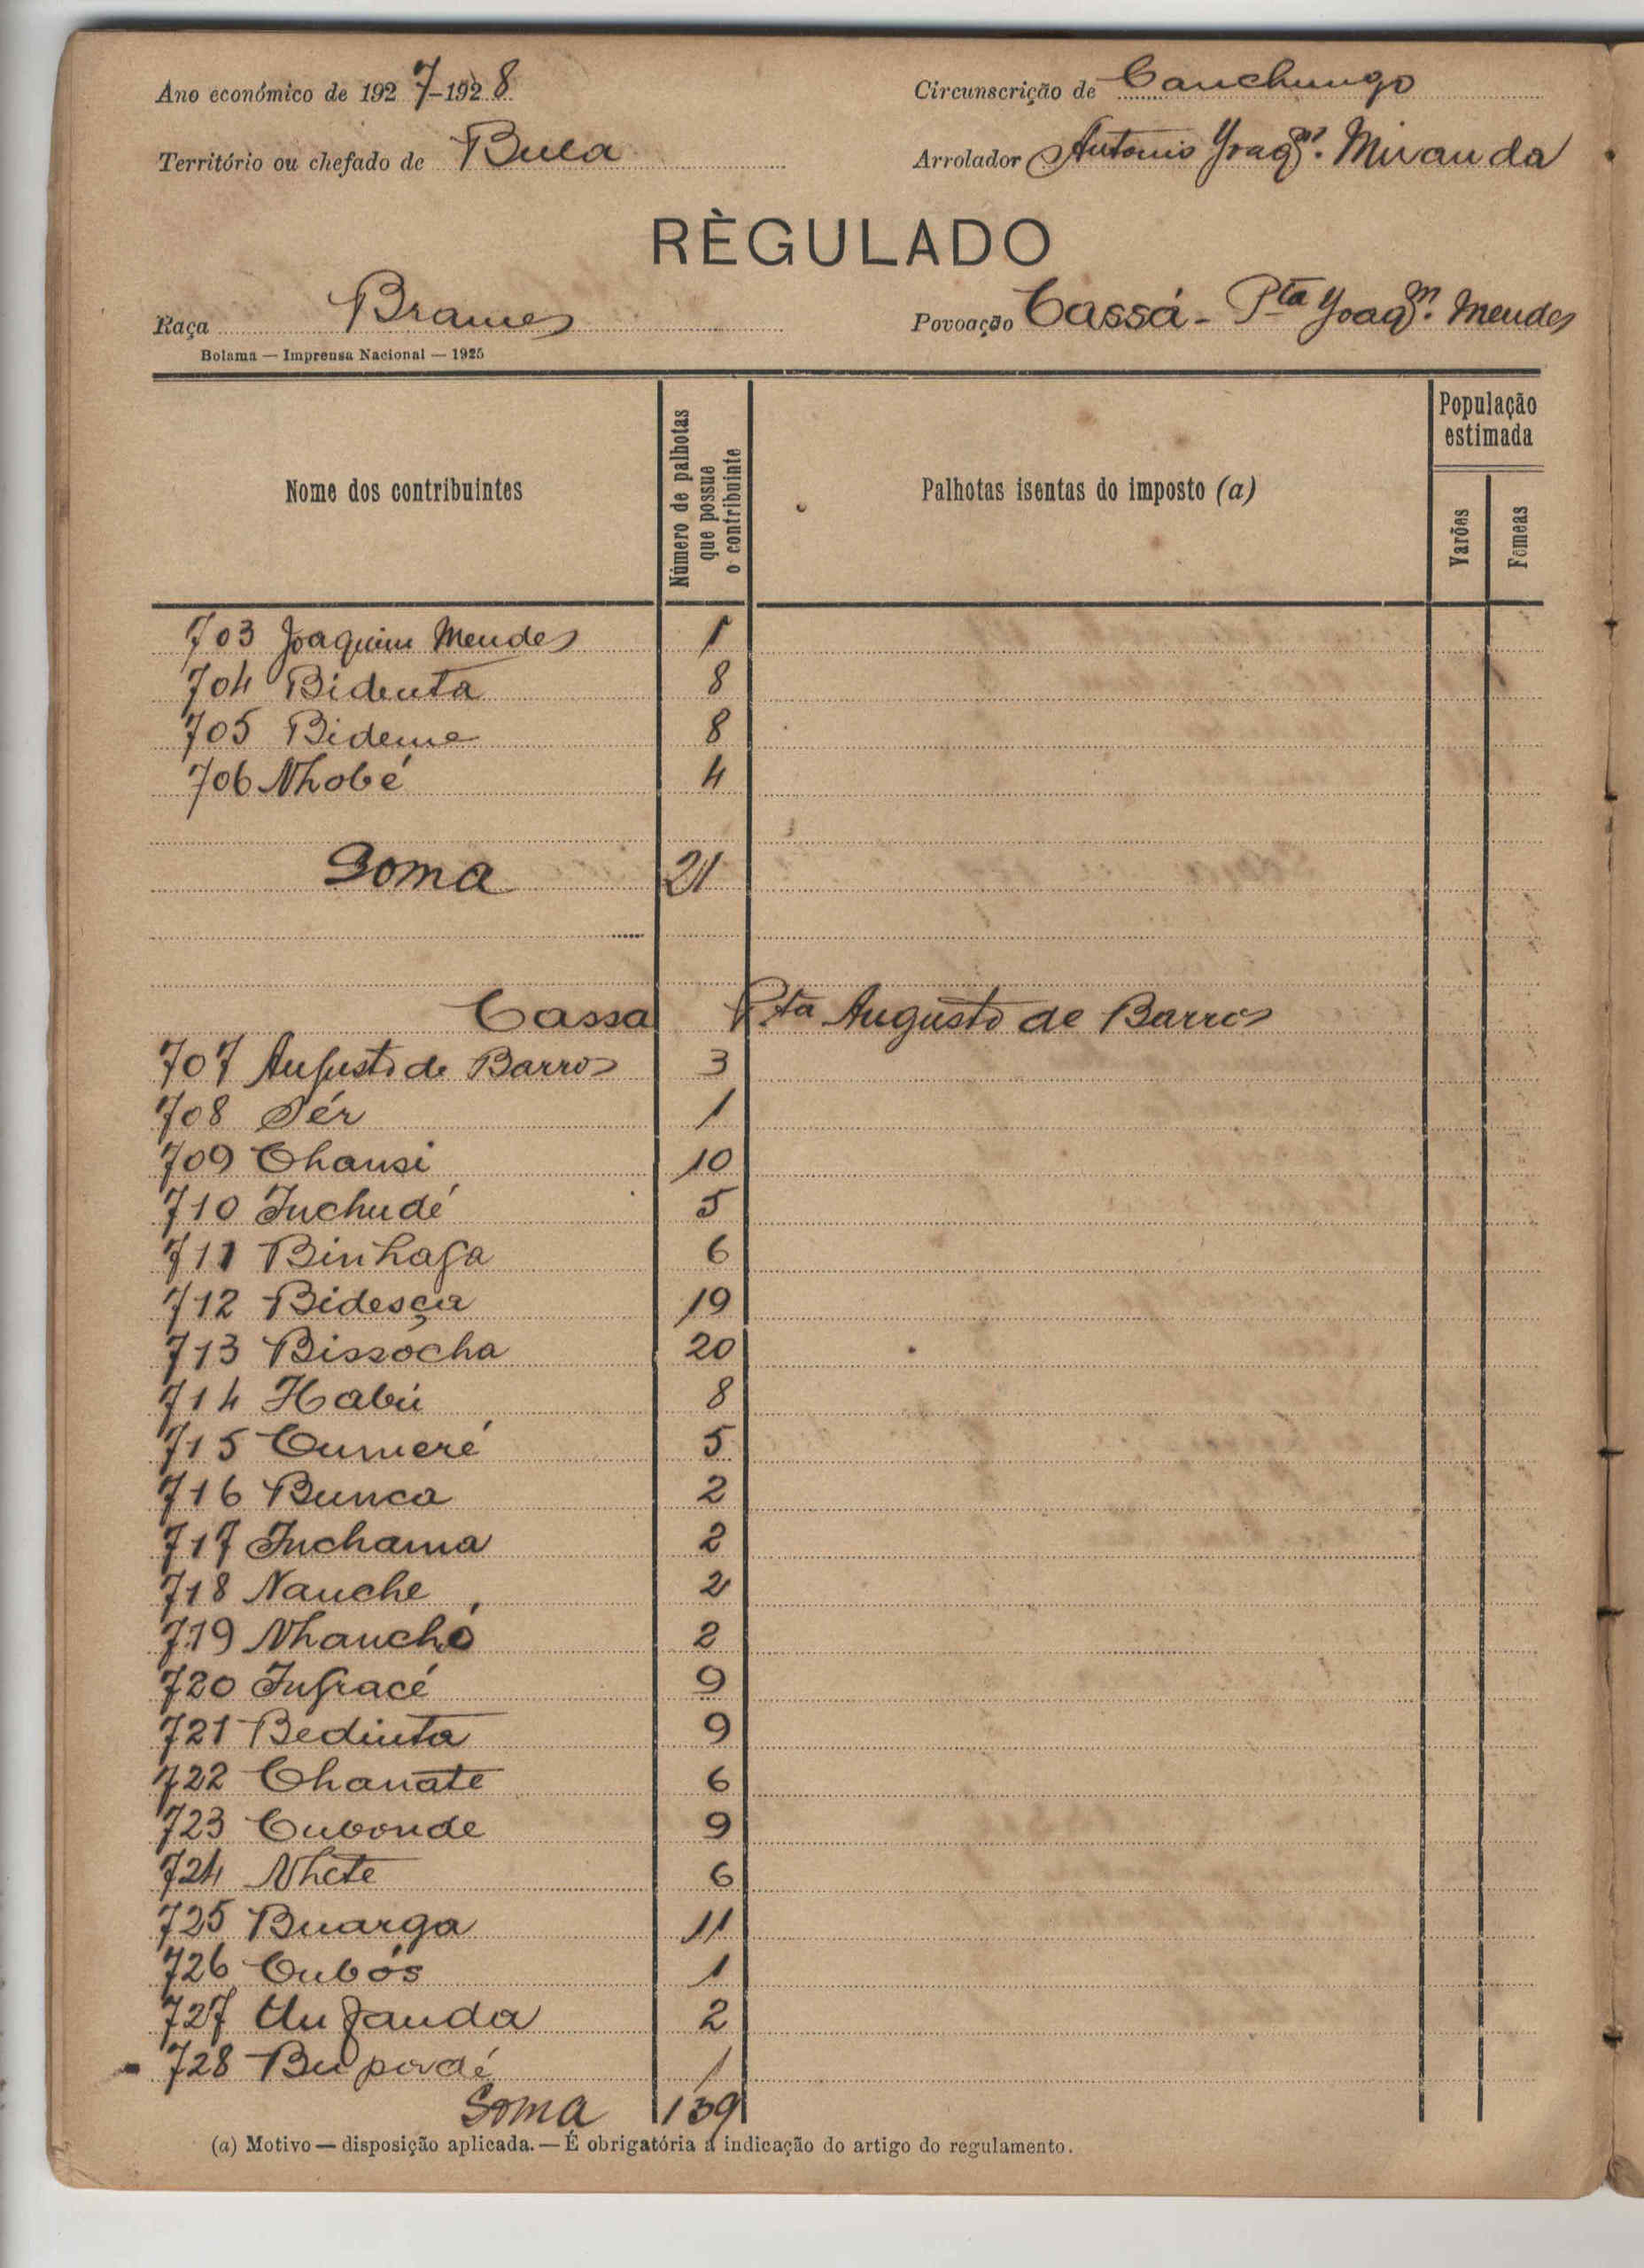 Ano económico de 1927-1928
Circunscrição de Canchungo
Território ou chefado de Bula
Arrolador Antonio Joaqm. Miranda
RÈGULADO
Raça Brames
Povoação Cassá - Pta Joaqm. Mendes
Bolama — Imprensa Nacional — 1925
Nome dos contribuintes
Número de palhotas que possue o contribuinte
Palhotas isentas do imposto (a)
População estimada
Varões
Fêmeas
703 Joaquim Mendes 1
704 Bidenta 8
705 Bideme 8
706 Nhobé 4
Soma 21
Cassa Pta Augusto de Barros
707 Augusto de Barros 3
708 Sér 1
709 Chansi 10
710 Inchudé 5
711 Binhaga 6
712 Bidesça 19
713 Bissócha 20
714 Habú 8
715 Cumeré 5
716 Bunca 2
717 Inchama 2
718 Nanche 2
719 Nhanchó 2
720 Ingracé 9
721 Bedinta 9
722 Chanate 6
723 Cubonde 9
724 Nhete 6
725 Buarga 11
726 Cubós 1
727 Unfanda 2
728 Bupordé 1
Soma 139
(a) Motivo — disposição aplicada. — É obrigatória a indicação do artigo do regulamento.